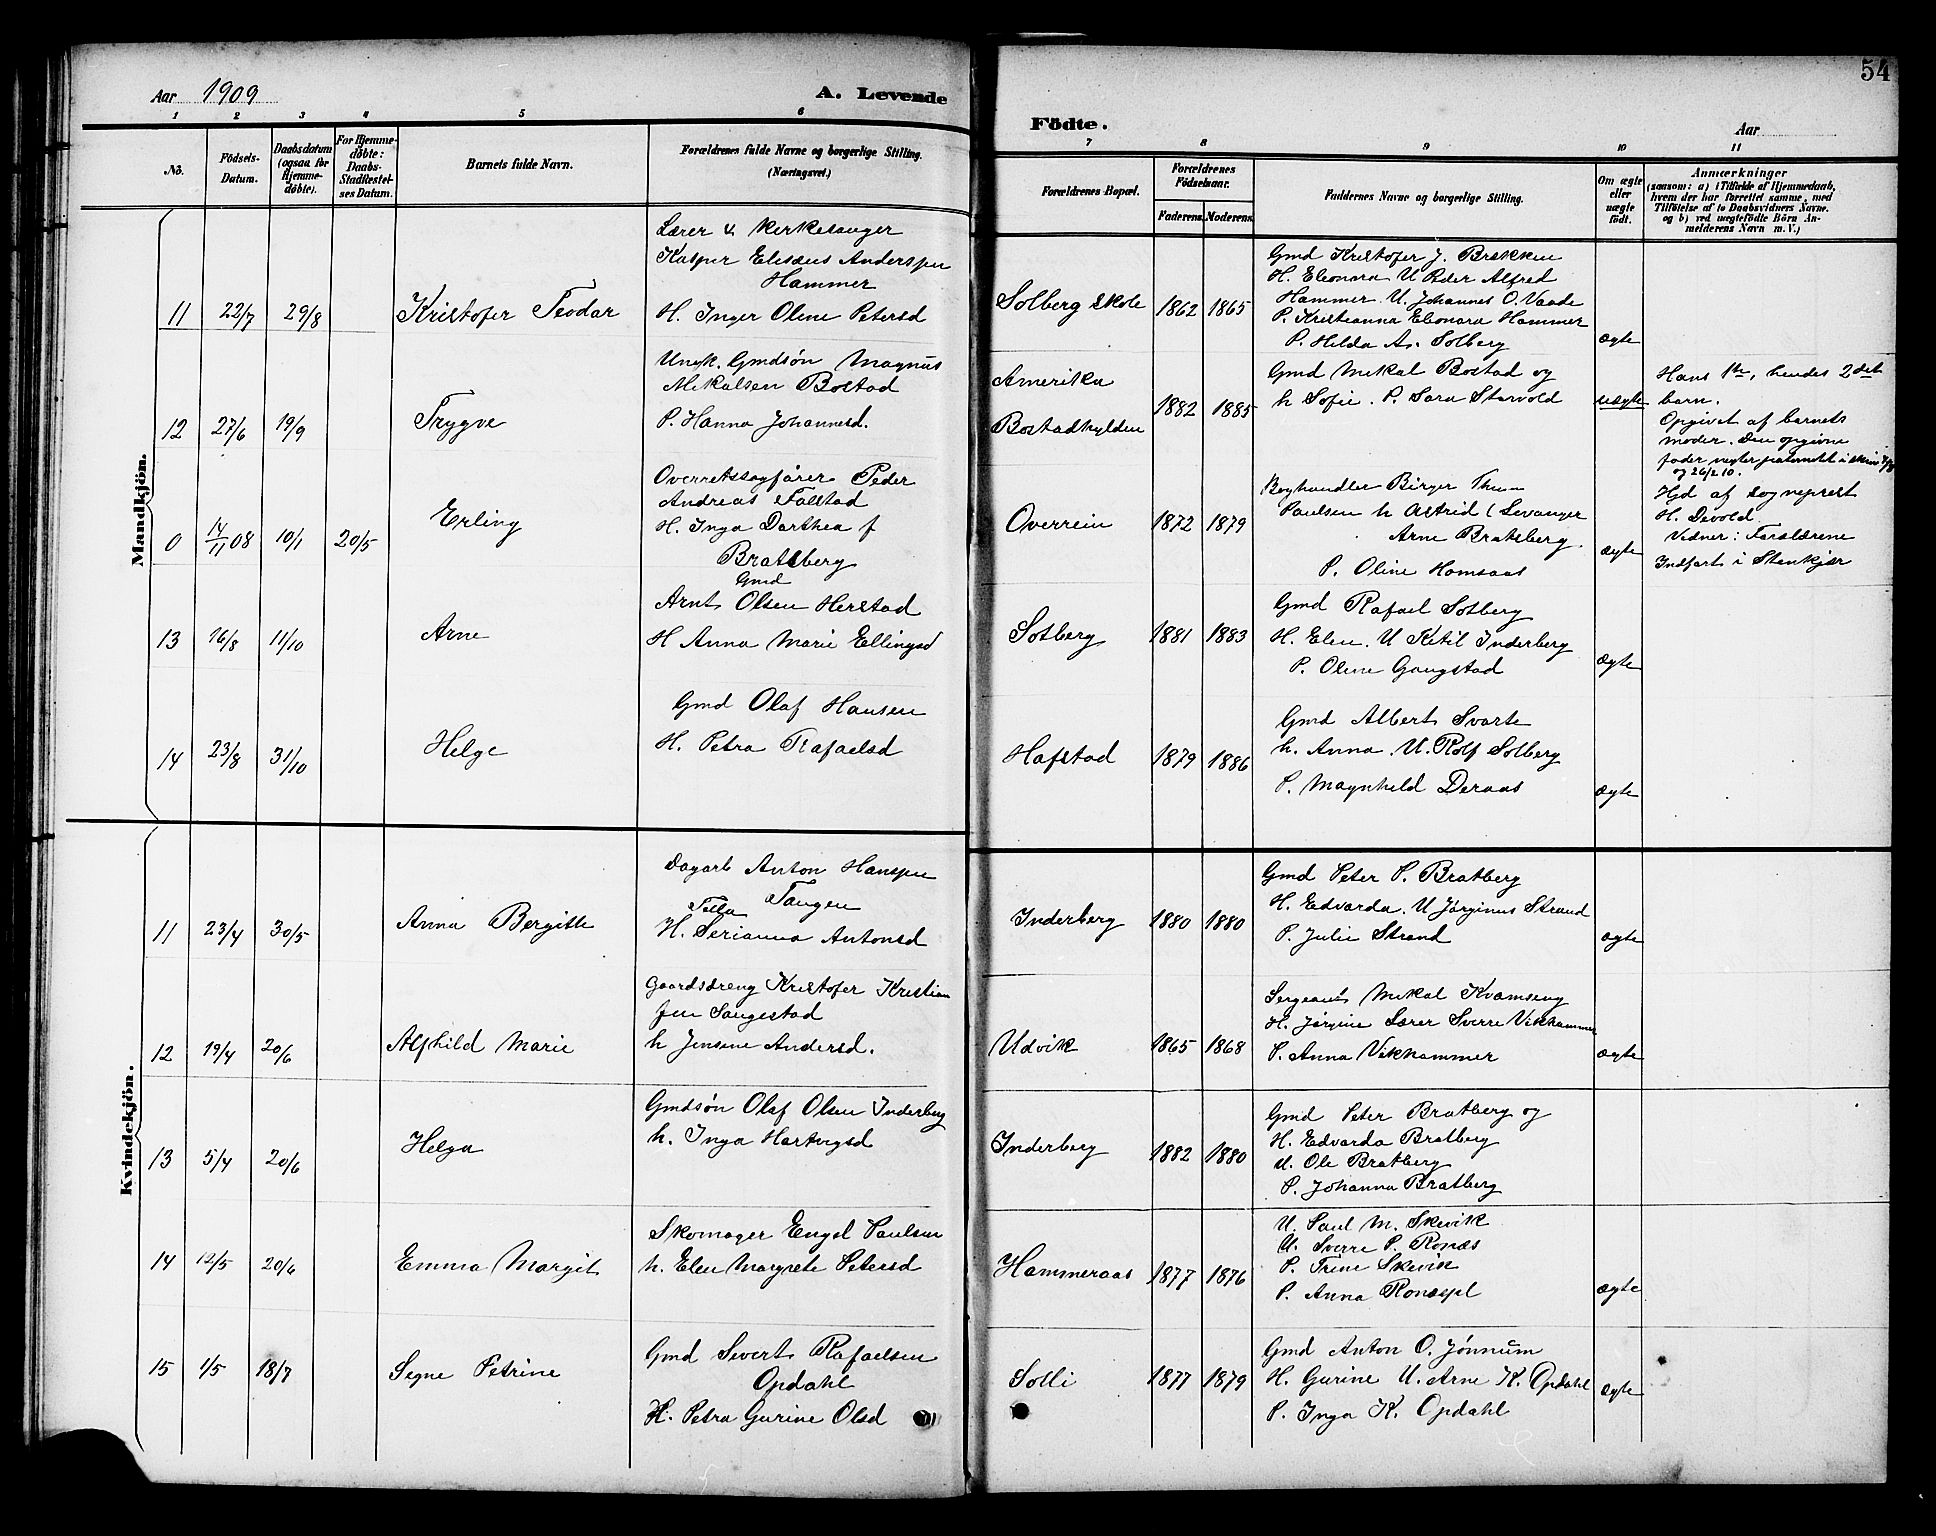 Aar 1909
A. Levende
1 2 3 4 5 6
No.
Födsels-Datum.
Daabsdatum (ogsaa for Hjemmedöbte).
For Hjemmedöbte: Daabs-Stadfæstelses Datum.
Barnets fulde Navn.
Forældrenes fulde Navne og borgerlige Stilling. (Næringsvei.)
Mandkjön.
Lærer & kirkesanger
Kasper Elisæus Anderssen
Hammer
11 22/7 29/8 Kristofer Teodar H. Inger Oline Petersd
Ungk. Gmdsøn Magnus
Mikalsen Bostad
12 27/6 19/9 Trygve P. Hanna Johannesd.
Overretssagfører Peder
Andreas Falstad
0 14/11 08 10/1 20/5 Erling H. Inga Dorthea f
Bratsberg
Gmd
Arnt Olsen Herstad
13 16/8 11/10 Arne H Anna Marie Ellingsd
Gmd Olaf Hansen
14 23/8 31/10 Helge H. Petra Rafaelsd
Kvindekjön.
Dagarb Anton Hanssen
Tangen
11 23/4 30/5 Anna Bergitte H. Serianna Antonsd
Gaardsdreng Kristofer Kristian
sen Saugestad
12 19/4 20/6 Alfhild Marie h Jensine Andersd.
Gmdsøn Olaf Olsen Inderberg
13 5/4 20/6 Helga h. Inga Hartvigsd
Skomager Engel Paulsen
14 12/5 20/6 Emma Margit h. Elen Margrete Petersd
Gmd Sivert Rafaelsen
Opdahl
15 1/5 18/7 Signe Petrine H. Petra Gurine Olsd
54
Födte.
Aar
7 8 9 10 11
Forældrenes Bopæl.
Forældrenes Födselsaar.
Faderens. Moderens.
Faddernes Navne og borgerlige Stilling.
Om ægte eller uægte födt.
Anmærkninger
(saasom: a) i Tilfælde af Hjemmedaab, hvem der har forrettet samme, med Tilföielse af to Daabsvidners Navne, og b) ved uægtefödte Börn Anmelderens Navn m. V.)
Gmd Kristofer J. Brekken
H. Eleonora U Peder Alfred
Hammer. U. Johannes O. Vaade
Solberg skole 1862 1865 P. Kristianna Elonora Hammer
P. Hilda A. Solberg ægte
Amerika Gmd Mikal Bostad og
h Sofie. P. Sara Starvold
Bostadhylden 1882 1885 uægte
Hans 1ste, hendes 2det
barn.
Opgivet af barnets
moder. Den opgivne
fader negter paternitet i
og 26/2 10.
Boghandler Birger Thun
Paulsen h Astrid (Levanger
Overrein 1872 1879 Arne Bratsberg.
P. Oline Homsaas ægte
Hjd af sogneprest
H. Devold
Vidner: Forældrene
Indført i Stenkjær
Gmd Rafael Solberg
Solberg 1881 1883 H. Elen. U Ketil Inderberg
P. Oline Gangstad ægte
Gmd Albert Svarte
h. Anna. U. Rolf Solberg
Hafstad 1879 1886 P. Magnhild Deraas ægte
Gmd Peter P. Bratberg
H. Edvarda. U Jørginus Strand
Inderberg 1880 1880 P. Julie Strand ægte
Sergeant Mikal Kvamseng
H. Jørgine Lærer Sverre Vikhammer
Udvik 1865 1868 P. Anna Vikhammer ægte
Gmd Peter Bratberg og
H. Edvarda Bratberg
Inderberg 1882 1880 U. Ole Bratberg
P. Johanna Bratberg
U. Paul M. Skivik
U. Sverre P. Ronæs
P. Trine Skivik
Hammeraas 1877 1876 P. Anna Ronæspl ægte
Gmd Anton O. Jønnum
Solli 1877 1879 H. Gurine U. Arne K. Opdahl ægte
P. Inga K. Opdahl